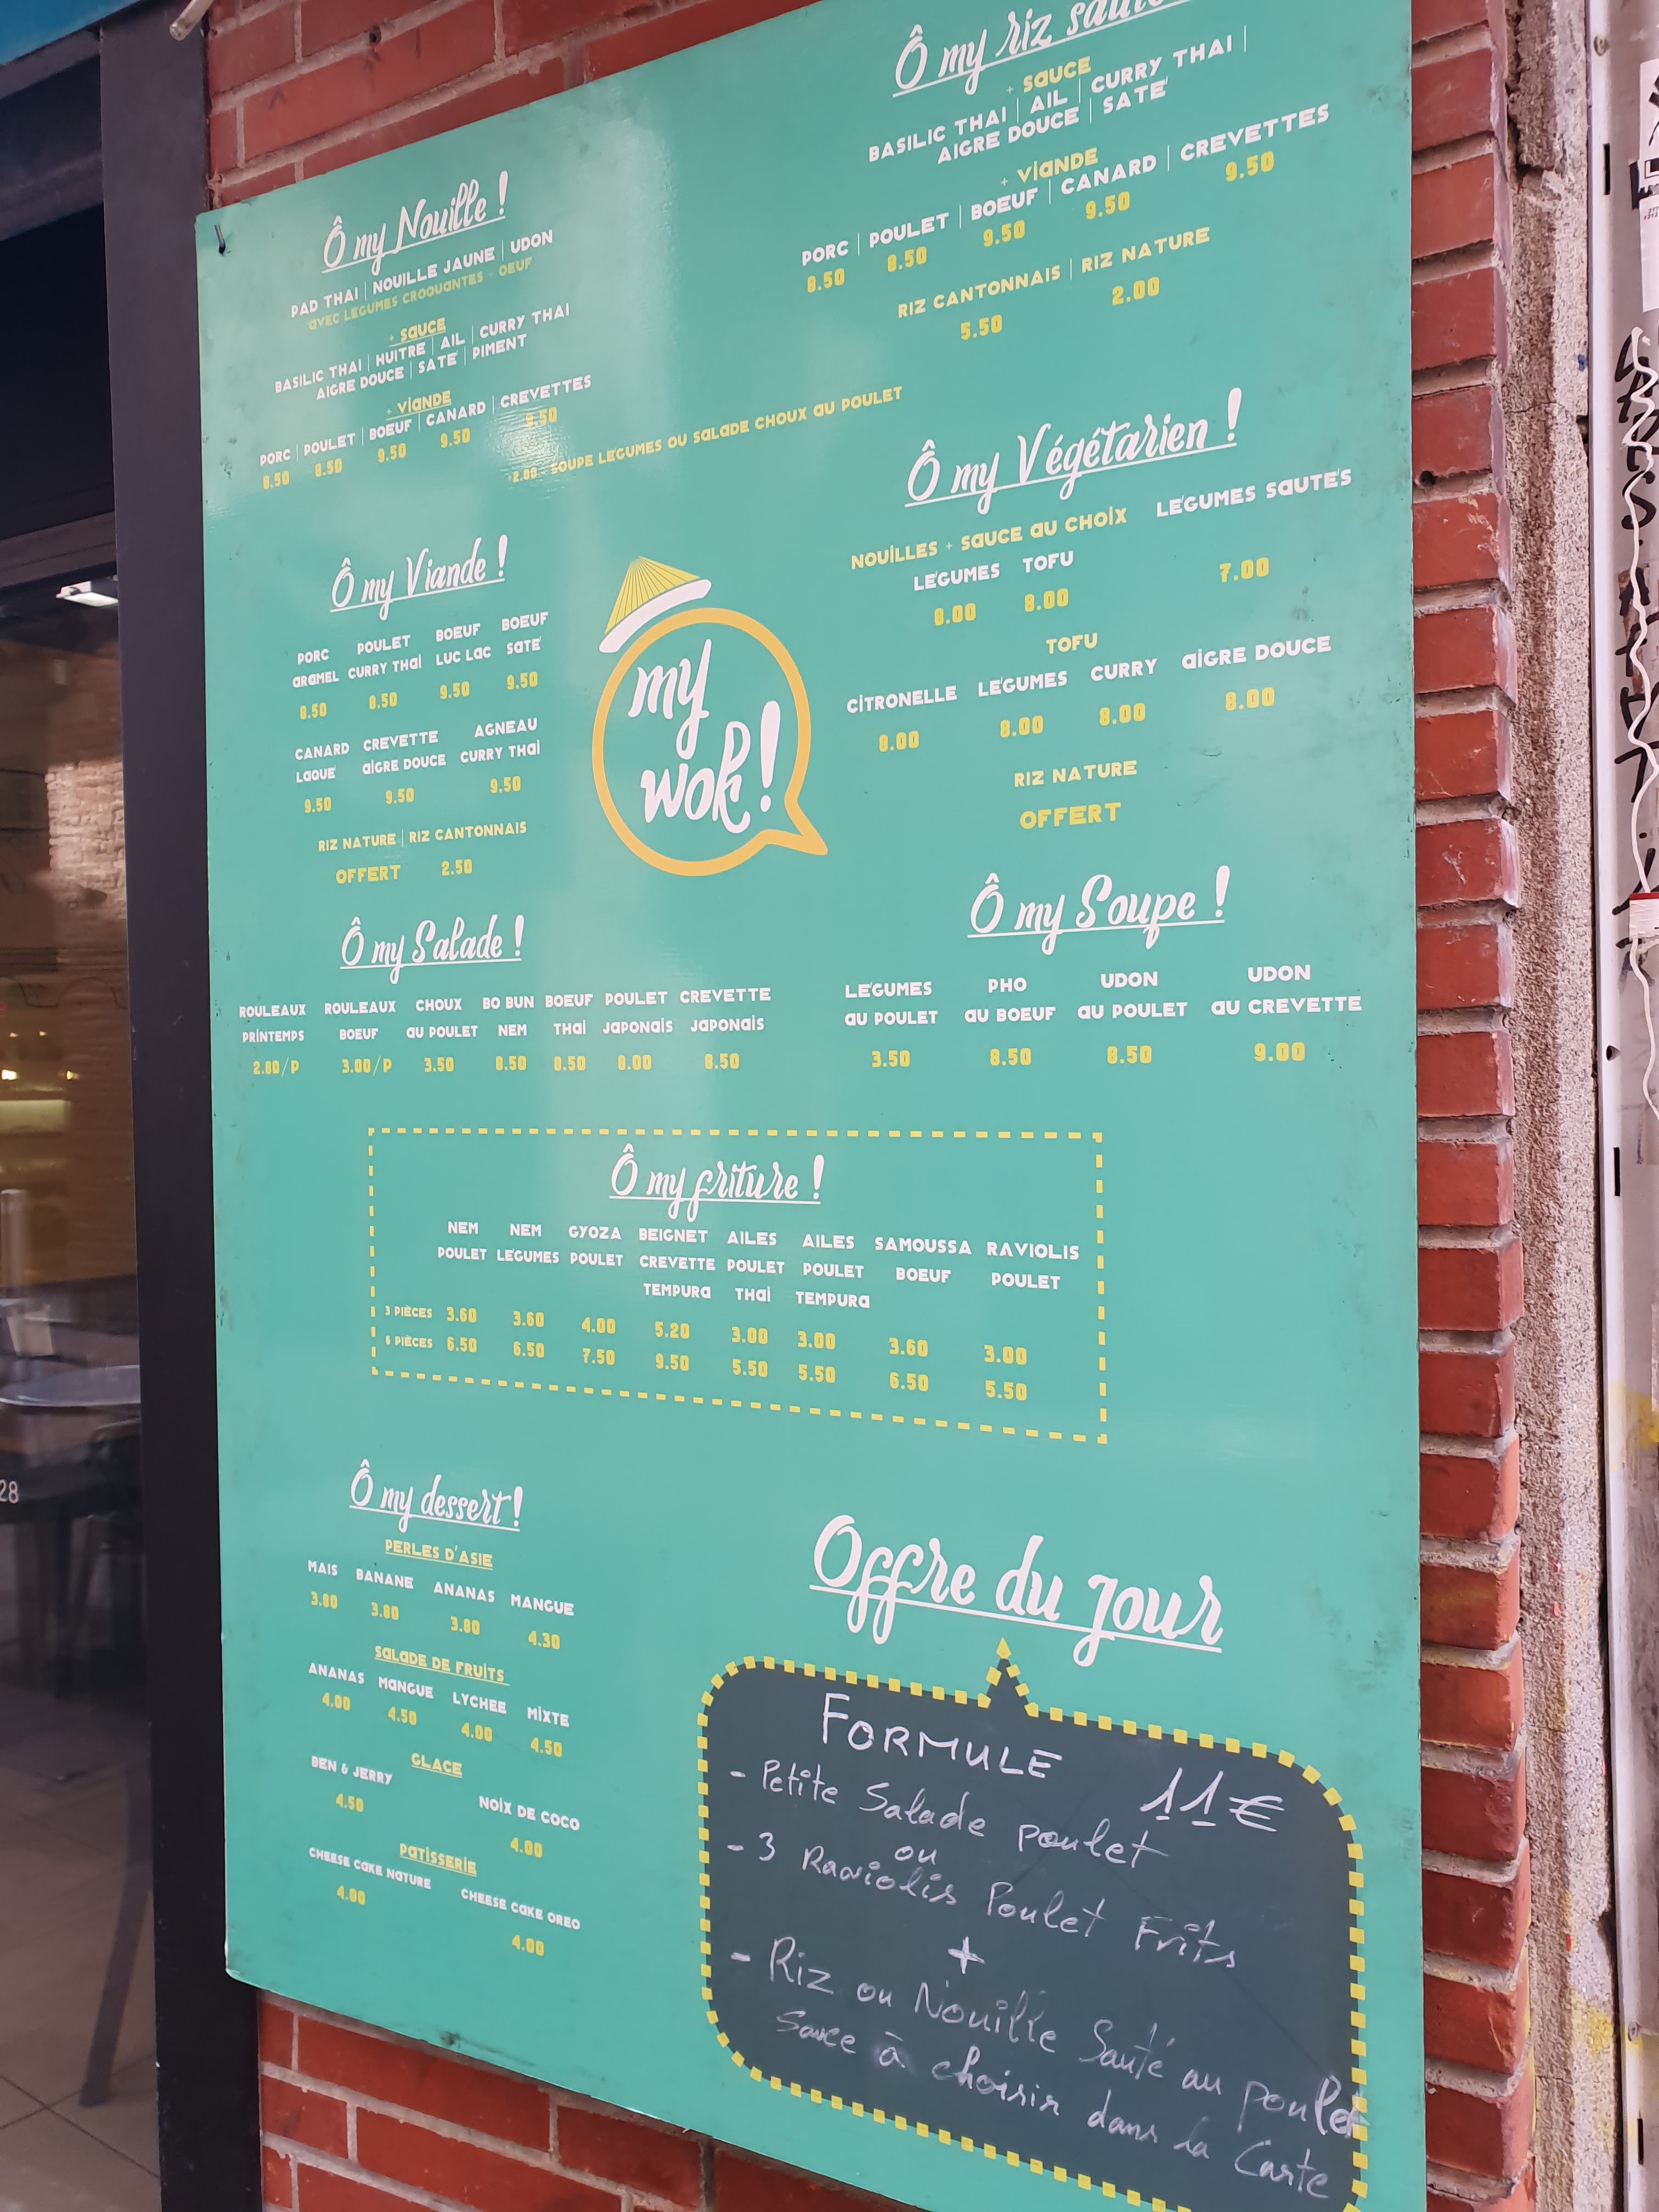 Ô my Nouille !
PAD THAI | NOUILLE JAUNE | UDON
AVEC LÉGUMES CROQUANTES + OEUF
+ SAUCE
BASILIC THAI | HUITRE | AIL | CURRY THAI
AIGRE DOUCE | SATÉ | PIMENT
+ VIANDE
PORC | POULET | BOEUF | CANARD | CREVETTES
8.50 8.50 9.50 9.50 9.50
+2.00 : SOUPE LÉGUMES OU SALADE CHOUX AU POULET
Ô my riz sauté
+ SAUCE
BASILIC THAI | AIL | CURRY THAI |
AIGRE DOUCE | SATÉ
+ VIANDE
PORC | POULET | BOEUF | CANARD | CREVETTES
8.50 8.50 9.50 9.50 9.50
RIZ CANTONNAIS | RIZ NATURE
5.50 2.00
Ô my Viande !
PORC POULET BOEUF BOEUF
ARAMEL CURRY THAI LUC LAC SATÉ
8.50 8.50 9.50 9.50
CANARD CREVETTE AGNEAU
LAQUÉ AIGRE DOUCE CURRY THAI
9.50 9.50 9.50
RIZ NATURE | RIZ CANTONNAIS
OFFERT 2.50
my
wok!
Ô my Végétarien !
NOUILLES + SAUCE AU CHOIX LÉGUMES SAUTÉS
LÉGUMES TOFU
8.00 8.00 7.00
TOFU
CITRONELLE LÉGUMES CURRY AIGRE DOUCE
8.00 8.00 8.00 8.00
RIZ NATURE
OFFERT
Ô my Salade !
ROULEAUX ROULEAUX CHOUX BO BUN BOEUF POULET CREVETTE
PRINTEMPS BOEUF AU POULET NEM THAI JAPONAIS JAPONAIS
2.80/P 3.00/P 3.50 8.50 8.50 8.00 8.50
Ô my Soupe !
LÉGUMES PHO UDON UDON
AU POULET AU BOEUF AU POULET AU CREVETTE
3.50 8.50 8.50 9.00
Ô my friture !
NEM NEM GYOZA BEIGNET AILES AILES SAMOUSSA RAVIOLIS
POULET LÉGUMES POULET CREVETTE POULET POULET BOEUF POULET
TEMPURA THAI TEMPURA
3 PIÈCES 3.60 3.60 4.00 5.20 3.00 3.00 3.60 3.00
6 PIÈCES 6.50 6.50 7.50 9.50 5.50 5.50 6.50 5.50
Ô my dessert !
PERLES D'ASIE
MAIS BANANE ANANAS MANGUE
3.80 3.80 3.80 4.30
SALADE DE FRUITS
ANANAS MANGUE LYCHEE MIXTE
4.00 4.50 4.00 4.50
GLACE
BEN & JERRY NOIX DE COCO
4.50 4.00
PATISSERIE
CHEESE CAKE NATURE CHEESE CAKE OREO
4.00 4.00
Offre du jour
FORMULE 11€
- Petite Salade poulet
ou
- 3 Raviolis Poulet Frits
+
- Riz ou Nouille Sauté au poulet
Sauce à choisir dans la Carte
28